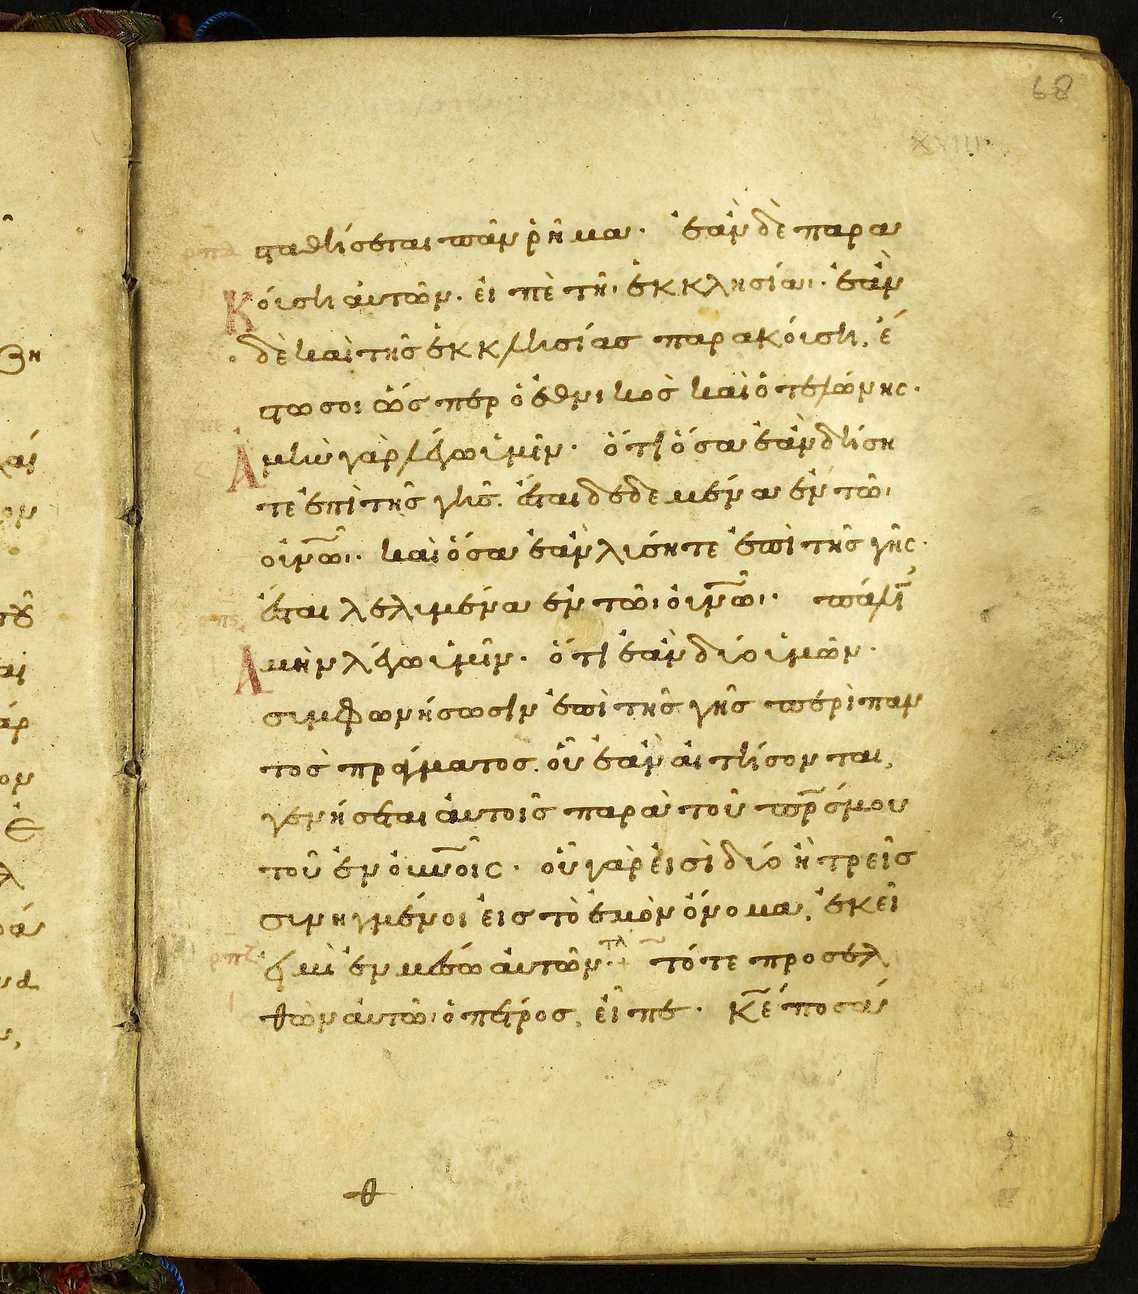 68
XXIII
ρπδ
σταθήσεται πᾶν ῥῆμα· ἐὰν δὲ παρα
Κούση ἀυτῶν· εἰπὲ τῆ ἐκκλησία· ἐὰν
δὲ καὶ τῆς ἐκκλησίας παρακούση, ἔ
στω σοι ὥσπερ ὁ ἐθνικὸς καὶ ὁ τελώνης·
Ἀμὴν γὰρ λέγω ὑμῖν· ὅτι ὅσα ἐὰν δήση
τε ἐπὶ τῆς γῆς. ἔσται δεδεμένα ἐν τῶ
οὐν̅ῶ· καὶ ὅσα ἐὰν λύσητε ἐπὶ τῆς γῆς·
ρπς
ἔσται λελυμένα ἐν τῶ οὐν̅ῶ· πάλιν
Ἀμὴν λέγω ὑμῖν· ὅτι ἐὰν δύο ὑμῶν·
συμφωνήσωσιν ἐπὶ τῆς γῆς περὶ παν
τὸς πράγματος. οὗ ἐὰν αἰτήσονται,
γενήσεται ἀυτοῖς παρὰ τοῦ π̅ρ̅ς μου
τοῦ ἐν οὐν̅οῖς· οὗ γάρ εἰσὶ δύο ἢ τρεῖς
συνηγμένοι εἰς τὸ ἐμὸν ὄνομα, ἐκεῖ
ρπζ
εἰμὶ ἐν μέσω ἀυτῶν· τλ + τότε προσελ
θὼν ἀυτῶ ὁ πέτρος, εἶπε· Κ̅ε̅ ποσά
θ